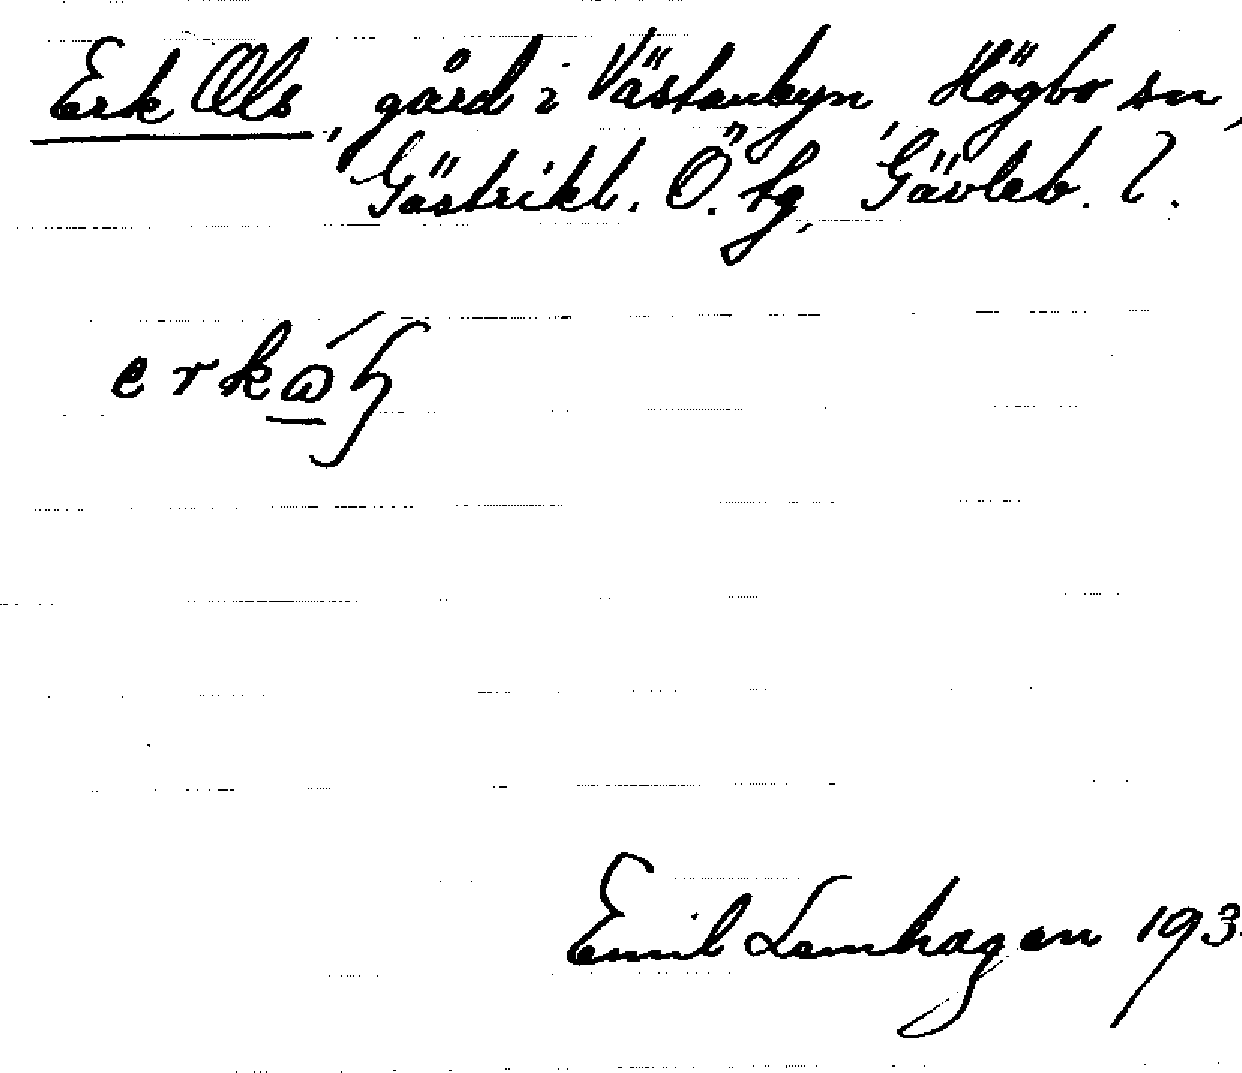 Erk Ols, gård i Västanbyn, Högbo sn,
Gästrikl. Ö. tg, Gävleb. l.
Emil Lemhagen 193